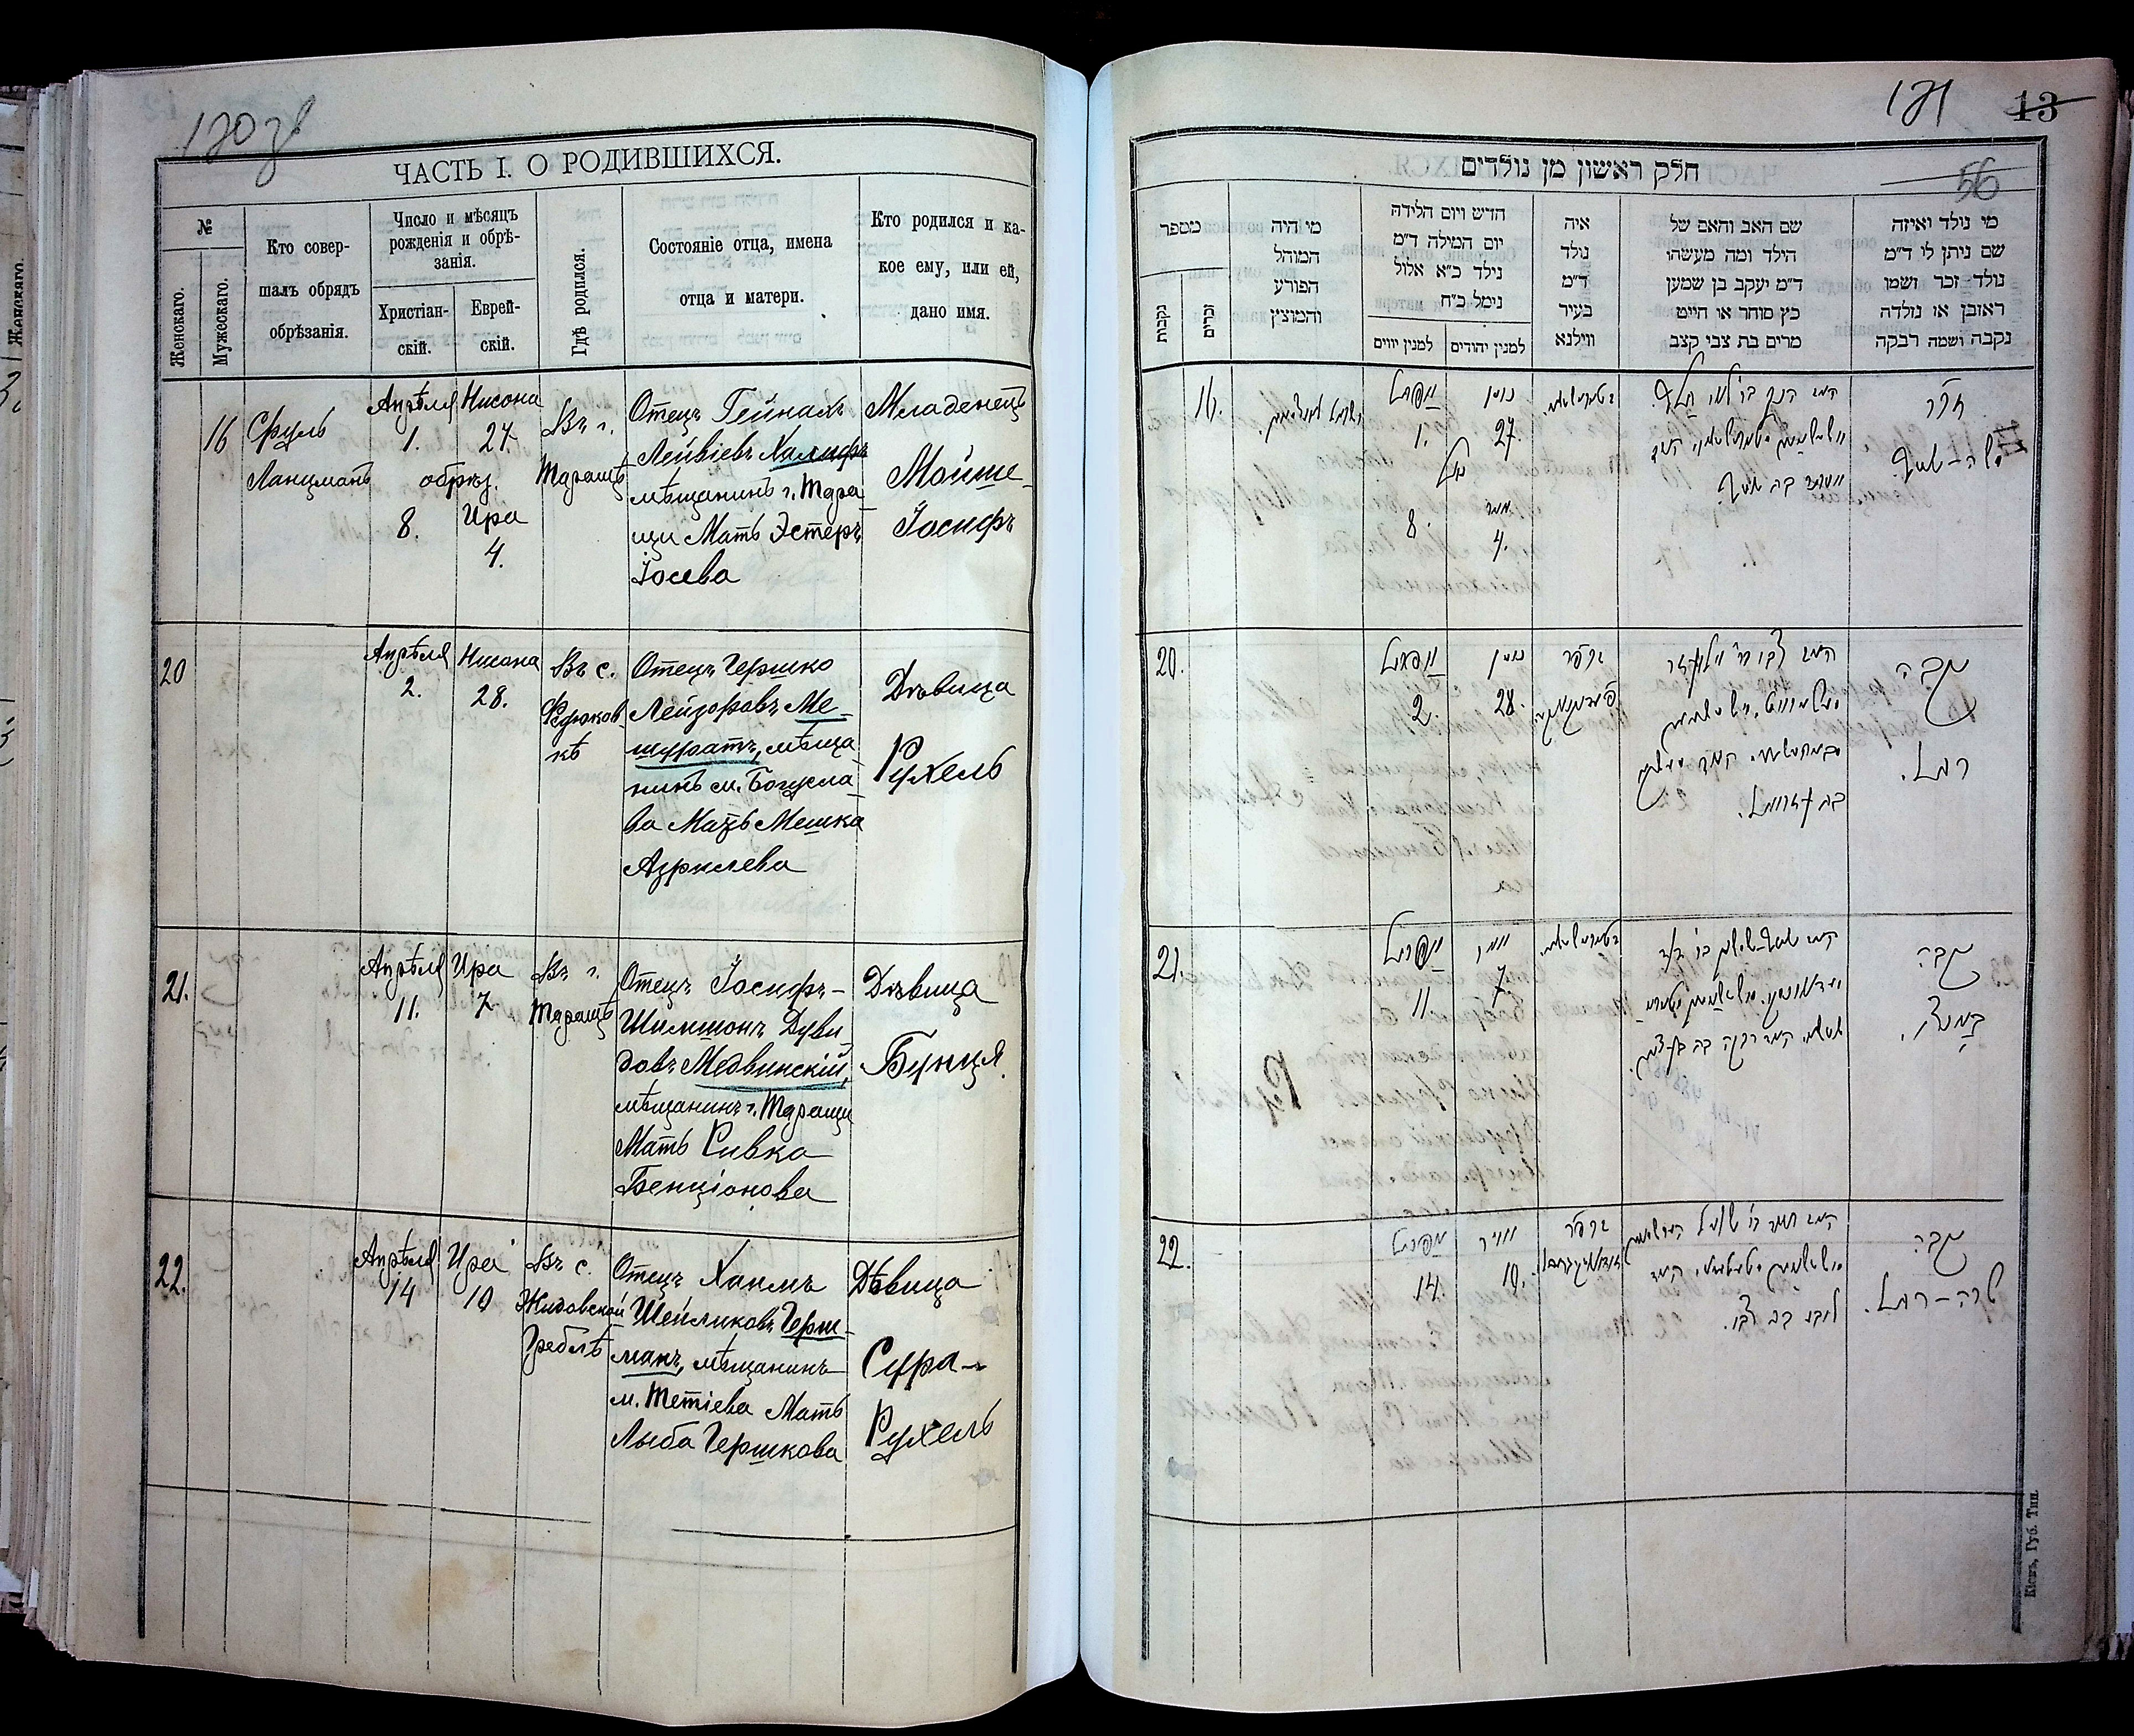 ЧАСТЬ I. О РОДИВШИХСЯ.
№
Женскаго.
Мужескаго.
Кто совер-
шалъ обрядъ
обрѣзанія.
Число и мѣсяцъ
рожденія и обрѣ-
занія.
Христіан-
скій.
Еврей-
скій.
Гдѣ родился.
Состояніе отца, имена
отца и матери.
Кто родился и ка-
кое ему, или ей,
дано имя.
16
Сруль
Ланцманъ
Апрѣля
1.
обрѣз.
8.
Нисона
27.
Ира
4.
Въ г.
Таращѣ
Отецъ Гейнахъ
Лейвіевъ Халифъ
мѣщанинъ г. Тара
щи Мать Эстеръ
Іосева
Младенецъ
Мойше-
Іосифъ
20
Апрѣля
2.
Нисана
28.
Въ с.
Федюков
кѣ
Отецъ Гершко
Лейзоровъ Ме-
шуратъ, мѣща
нинъ м. Богусла-
ва Мать Мешка
Азрилева
Дѣвица
Рухель
21.
Апрѣля
11.
Ира
7
Въ г.
Таращѣ
Отецъ Іосифъ-
Шимшонъ Дуви
довъ Медвинскій,
мѣщанинъ г. Таращи
Мать Ривка
Бенціонова
Дѣвица
Бунця.
22.
Апрѣля
14
Ира
10
Въ с.
Жидовской
Греблѣ
Отецъ Хаимъ
Шейликовъ Герш-
манъ, мѣщанинъ
м. Тетіева Мать
Лыба Гершкова
Дѣвица
Сура-
Рухель
171
13
56
חלק ראשון מן נולדים
מספר
נקבות
זכרים
מי היה
המוהל
הפורע
והמוצץ
חדש ויום הלידה
יום המילה ד״מ
נילד כ״א אלול
נימל כ״ח
למנין יוונים
למנין יהודים
איה
נולד
ד״מ
בעיר
ווילנא
שם האב והאם של
הילד ומה מעשהו
ד״מ יעקב בן שמען
כץ סוחר או חייט
מרים בת צבי קצב
מי נולד ואיזה
שם ניתן לו ד״מ
נולד זכר ושמו
ראובן או נולדה
נקבה ושמה רבקה
16.
אפריל
1.
ניסן
27.
נימול
8.
אייר
4.
זכר
משה-יוסף
20.
אפריל
2.
ניסן
28.
נקבה
רחל.
21.
אפריל
11
אייר
7.
נקבה
22.
אפריל
14.
אייר
10.
נקבה
שרה-רחל.
Кіевъ, Губ. Тип.